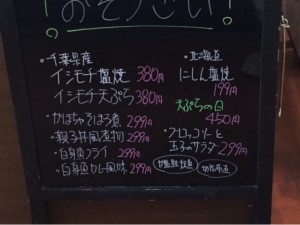 おそうざい!
・千葉県産
イシモチ塩焼 380円
イシモチ天ぷら 380円
・かぼちゃそぼろ煮 299円
・親子丼風煮物 299円
・白身魚フライ 299円
・白身魚カレー風味 299円
・北海道
にしん塩焼
199円
天ぷらの日
450円
・ブロッコリーと
玉子のサラダ 299円